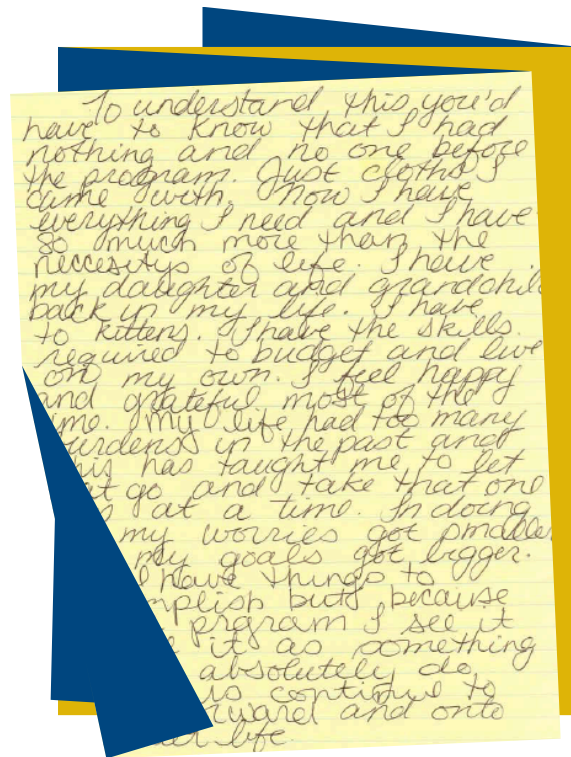 To understand this you'd
have to know that I had
nothing and no one before
the program. Just cloths I
came with. Now I have
everything I need and I have
so much more than the
neccesitys of life. I have
my daughter and grandchil
back in my life. I have
to kittens. I have the skills
required to budget and live
on my own. I feel happy
and grateful most of the
ime. My life had too many
urdens in the past and
his has taught me to let
at go and take that one
at a time. In doing
my worries got smaller
my goals got bigger.
I have things to
mplish but because
prgram I see it
it as something
absolutely do
us continue to
rward and onto
life.